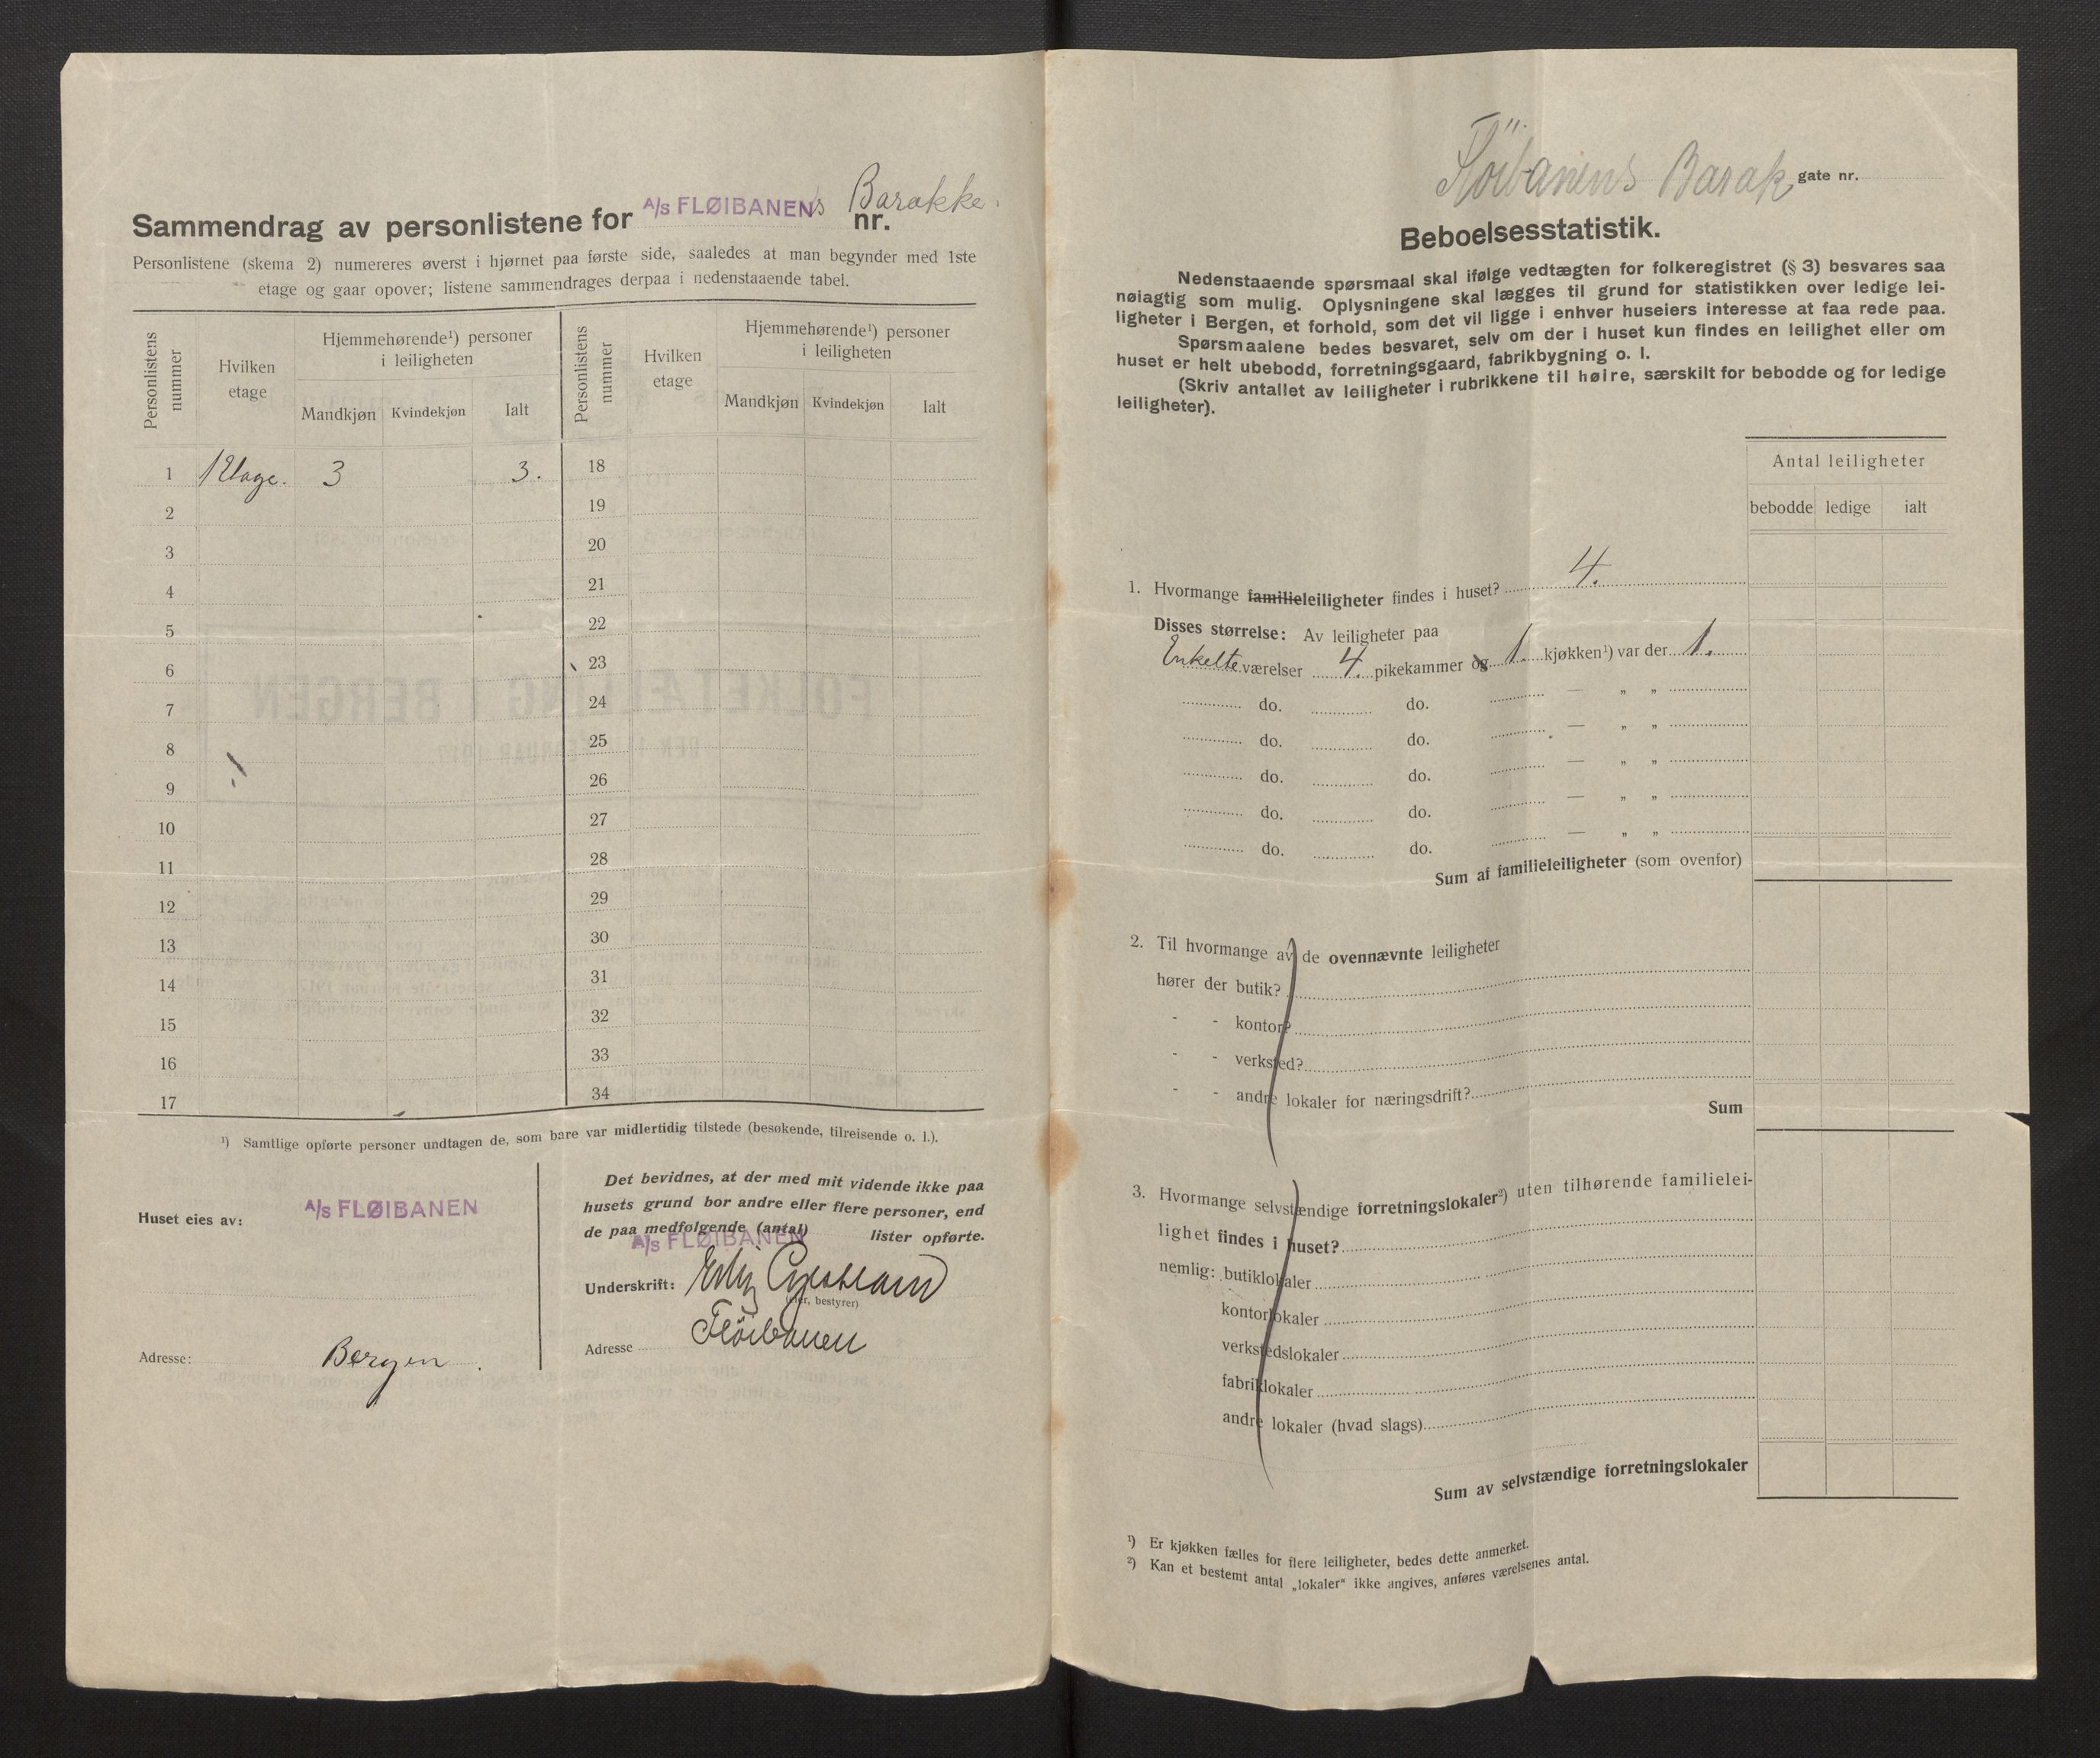 Sammendrag av personlistene for A/S FLØIBANENs Barakke. nr.
Personlistene (skema 2) numereres øverst i hjørnet paa første side, saaledes at man begynder med 1ste
etage og gaar opover; listene sammendrages derpaa i nedenstaaende tabel.
Personlistens nummer
Hvilken etage
Hjemmehørende¹) personer i leiligheten
Mandkjøn Kvindekjøn Ialt
Personlistens nummer
Hvilken etage
Hjemmehørende¹) personer i leiligheten
Mandkjøn Kvindekjøn Ialt
1 1 Etage. 3 3. 18
2 19
3 20
4 21
5 22
6 23
7 24
8 25
9 26
10 27
11 28
12 29
13 30
14 31
15 32
16 33
17 34
¹) Samtlige opførte personer undtagen de, som bare var midlertidig tilstede (besøkende, tilreisende o. l.).
Huset eies av: A/S FLØIBANEN
Adresse: Bergen.
Det bevidnes, at der med mit vidende ikke paa
husets grund bor andre eller flere personer, end
de paa medfølgende (antal) lister opførte.
A/S FLØIBANEN
Underskrift:
(eier, bestyrer)
Adresse Fløibanen
Flöibanens Barak gate nr.
Beboelsesstatistik.
Nedenstaaende spørsmaal skal ifølge vedtægten for folkeregistret (§ 3) besvares saa
nøiagtig som mulig. Oplysningene skal lægges til grund for statistikken over ledige lei-
ligheter i Bergen, et forhold, som det vil ligge i enhver huseiers interesse at faa rede paa.
Spørsmaalene bedes besvaret, selv om der i huset kun findes en leilighet eller om
huset er helt ubebodd, forretningsgaard, fabrikbygning o. l.
(Skriv antallet av leiligheter i rubrikkene til høire, særskilt for bebodde og for ledige
leiligheter).
Antal leiligheter
bebodde ledige ialt
1. Hvormange familieleiligheter findes i huset? 4.
Disses størrelse: Av leiligheter paa
Enkelte værelser 4. pikekammer og 1. kjøkken¹) var der 1.
do. do. — „ „
do. do. — „ „
do. do. — „ „
do. do. — „ „
do. do. — „ „
Sum af familieleiligheter (som ovenfor)
2. Til hvormange av de ovennævnte leiligheter
hører der butik?
- - kontor?
- - verksted?
- - andre lokaler for næringsdrift?
Sum
3. Hvormange selvstændige forretningslokaler²) uten tilhørende familielei-
lighet findes i huset?
nemlig: butiklokaler
kontorlokaler
verkstedslokaler
fabriklokaler
andre lokaler (hvad slags)
Sum av selvstændige forretningslokaler
¹) Er kjøkken fælles for flere leiligheter, bedes dette anmerket.
²) Kan et bestemt antal „lokaler“ ikke angives, anføres værelsenes antal.